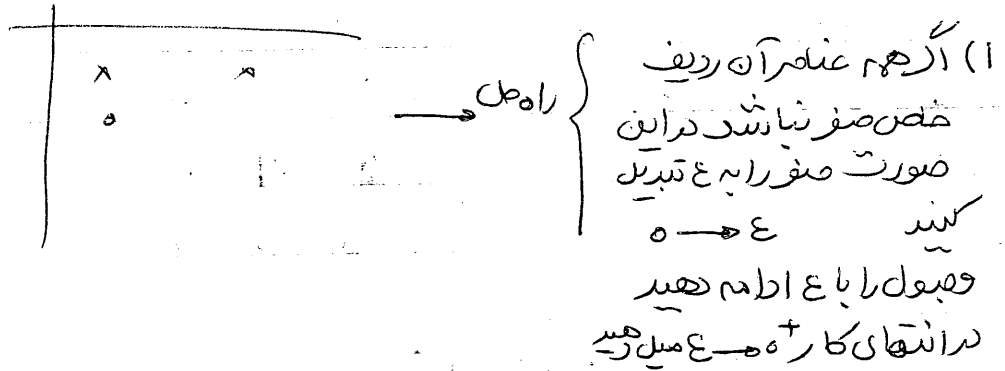 x x
0
راه حل
۱) اگر همه عناصر آن ردیف
خاص صفر نباشد در این
صورت صفر را به ε تبدیل
کنید 0 → ε
وجدول را با ε ادامه دهید
در انتهای کار ε → 0+ میل دهید